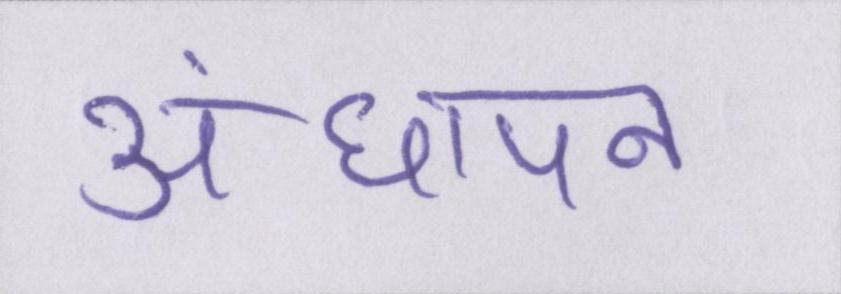 अंधापन